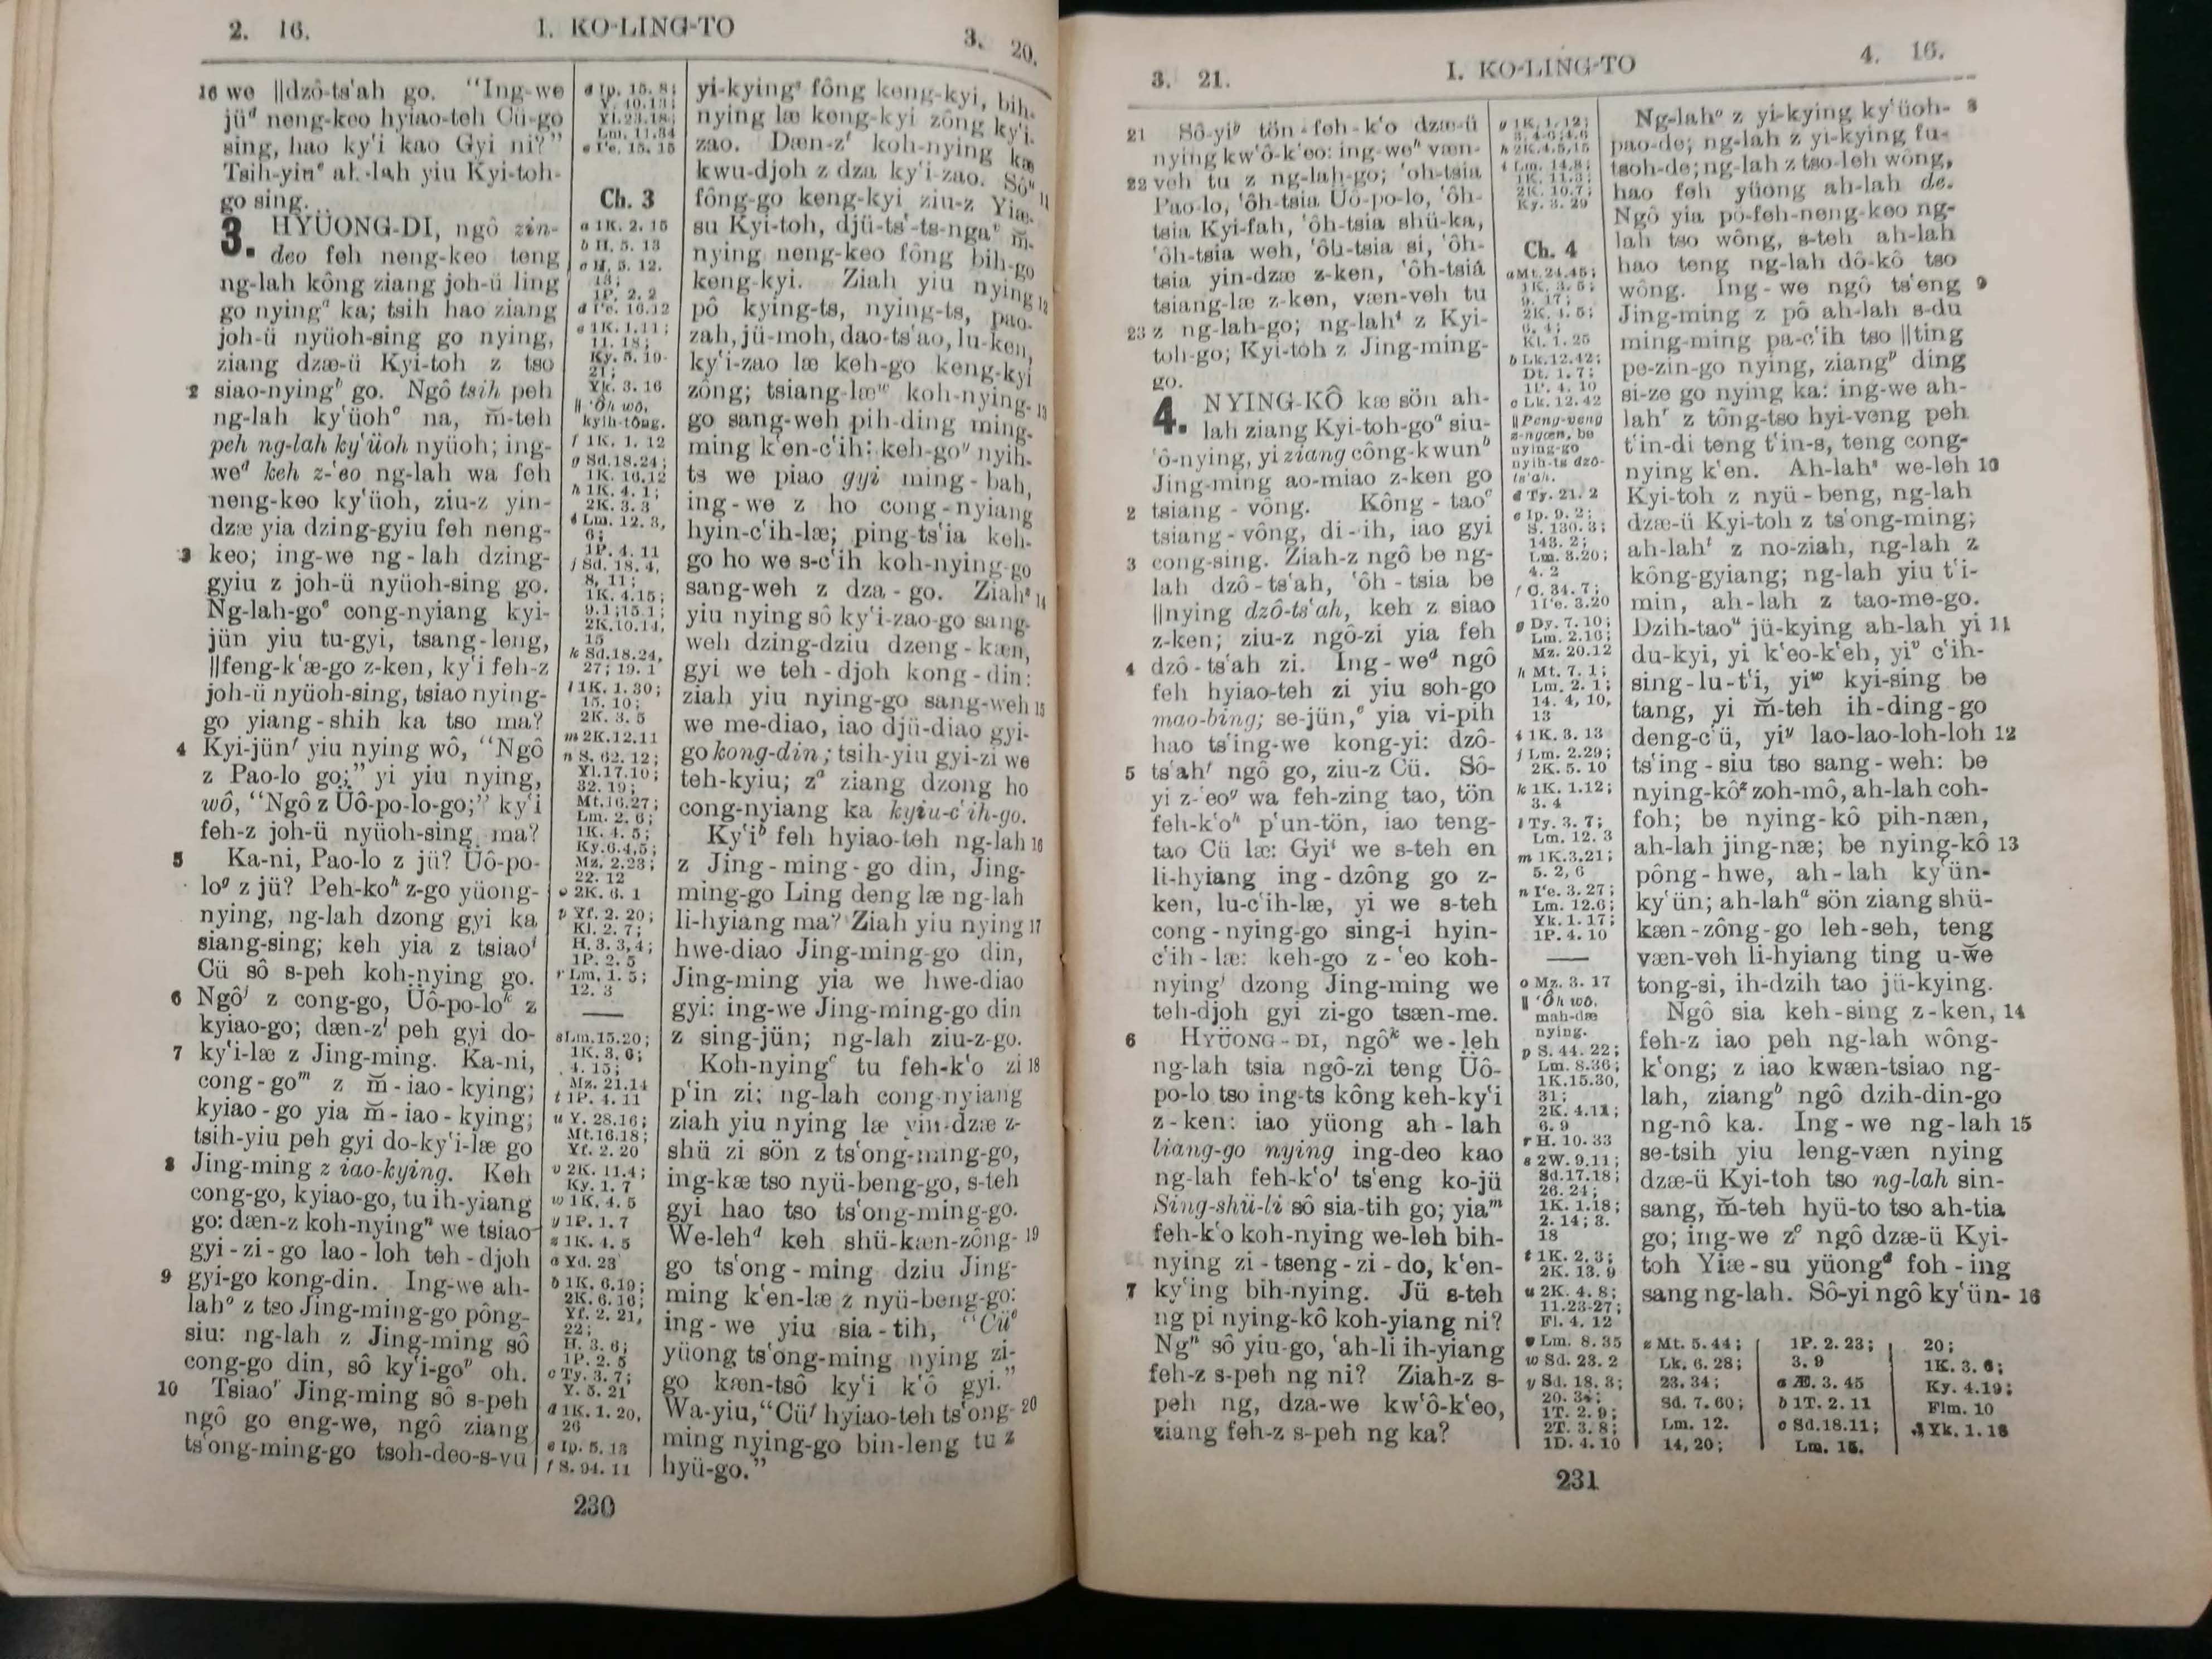 2. 16.
I. KO-LING-TO
3. 20.
16 we ||dzô-ts'ah go. "Ing-we
jüᵈ neng-keo hyiao-teh Cü-go
sing, hao ky'i kao Gyi ni?"
Tsih-yiuᵉ ah-lah yiu Kyi-toh-
go sing.
3. HYÜONG-DI, ngô zin-
deo feh neng-keo teng
ng-lah kông ziang joh-ü ling
go nyingᵃ ka; tsih hao ziang
joh-ü nyüoh-sing go nying,
ziang dzæ-ü Kyi-toh z tso
2 siao-nyingᵇ go. Ngô tsih peh
ng-lah ky'üohᶜ na, m̆-teh
peh ng-lah ky'üoh nyüoh; ing-
weᵈ keh z-'eo ng-lah wa feh
neng-keo ky'üoh, ziu-z yin-
dzæ yia dzing-gyiu feh neng-
3 keo; ing-we ng-lah dzing-
gyiu z joh-ü nyüoh-sing go.
Ng-lah-goᵉ cong-nyiang kyi-
jün yiu tu-gyi, tsang-leng,
||feng-k'æ-go z-ken, ky'i feh-z
joh-ü nyüoh-sing, tsiao nying-
go yiang-shih ka tso ma?
4 Kyi-jünᶠ yiu nying wô, "Ngô
z Pao-lo go;" yi yiu nying,
wô, "Ngô z Üô-po-lo-go;" ky'i
feh-z joh-ü nyüoh-sing ma?
5 Ka-ni, Pao-lo z jü? Üô-po-
loᵍ z jü? Peh-koʰ z-go yüong-
nying, ng-lah dzong gyi ka
siang-sing; keh yia z tsiaoⁱ
Cü sô s-peh koh-nying go.
6 Ngôʲ z cong-go, Üô-po-loᵏ z
kyiao-go; dæn-zˡ peh gyi do-
7 ky'i-læ z Jing-ming. Ka-ni,
cong-goᵐ z m̆-iao-kying;
kyiao-go yia m̆-iao-kying;
tsih-yiu peh gyi do-ky'i-læ go
8 Jing-ming z iao-kying. Keh
cong-go, kyiao-go, tu ih-yiang
go: dæn-z koh-nyingⁿ we tsiao
gyi-zi-go lao-loh teh-djoh
9 gyi-go kong-din. Ing-we ah-
lahᵒ z tso Jing-ming-go pông-
siu: ng-lah z Jing-ming sô
cong-go din, sô ky'i-goᵖ oh.
10 Tsiaoʳ Jing-ming sô s-peh
ngô go eng-we, ngô ziang
ts'ong-ming-go tsoh-deo-s-vu
d Ip. 15. 8;
Y. 40.13;
Yi.23.18;
Lm. 11.34
e I'e. 15. 15
Ch. 3
a 1K. 2. 15
b H. 5. 13
c H. 5. 12.
13;
1P. 2. 2
d I'e. 16.12
e 1K. 1.11;
11. 18;
Ky. 5. 19-
21;
Yk. 3. 16
|| 'Ôh wô,
kyih-tông.
f 1K. 1. 12
g Sd.18.24;
1K. 16.12
h 1K. 4. 1;
2K. 3. 3
i Lm. 12. 3,
6;
1P. 4. 11
j Sd. 18. 4,
8, 11;
1K. 4.15;
9.1;15.1;
2K.10.14,
15
k Sd.18.24,
27; 19. 1
l 1K. 1. 30;
15. 10;
2K. 3. 5
m 2K.12.11
n S. 62. 12;
Yl.17.10;
32. 19;
Mt.16.27;
Lm. 2. 6;
1K. 4. 5;
Ky.6.4,5;
Mz. 2.23;
22. 12
o 2K. 6. 1
p Yf. 2. 20;
Kl. 2. 7;
H. 3. 3,4;
1P. 2. 5
r Lm. 1. 5;
12. 3
s Lm.15.20;
1K. 3. 6;
4. 15;
Mz. 21.14
t 1P. 4. 11
u Y. 28.16;
Mt.16.18;
Yf. 2. 20
v 2K. 11.4;
Ky. 1. 7
w 1K. 4. 5
y 1P. 1. 7
z 1K. 4. 5
a Yd. 23
b 1K. 6.19;
2K. 6. 16;
Yf. 2. 21,
22;
H. 3. 6;
1P. 2. 5
c Ty. 3. 7;
Y. 5. 21
d 1K. 1. 20,
26
e Ip. 5. 13
f S. 94. 11
yi-kyingˢ fông keng-kyi, bih-
nying læ keng-kyi zông ky'i-
zao. Dæn-zᵗ koh-nying kæ
kwu-djoh z dza ky'i-zao. Sôᵘ 11
fông-go keng-kyi ziu-z Yiæ-
su Kyi-toh, djü-ts'-ts-ngaᵛ m̆-
nying neng-keo fông bih-go
keng-kyi. Ziah yiu nying 12
pô kying-ts, nying-ts, pao-
zah, jü-moh, dao-ts'ao, lu-ken,
ky'i-zao læ keh-go keng-kyi
zông; tsiang-læʷ koh-nying- 13
go sang-weh pih-ding ming-
ming k'en-c'ih: keh-goʸ nyih-
ts we piao gyi ming-bah,
ing-we z ho cong-nyiang
hyin-c'ih-læ; ping-ts'ia keh-
go ho we s-c'ih koh-nying-go
sang-weh z dza-go. Ziahᶻ 14
yiu nying sô ky'i-zao-go sang-
weh dzing-dziu dzeng-kæn,
gyi we teh-djoh kong-din:
ziah yiu nying-go sang-weh 15
we me-diao, iao djü-diao gyi-
go kong-din; tsih-yiu gyi-zi we
teh-kyiu; zᵃ ziang dzong ho
cong-nyiang ka kyiu-c'ih-go.
Ky'iᵇ feh hyiao-teh ng-lah 16
z Jing-ming-go din, Jing-
ming-go Ling deng læ ng-lah
li-hyiang ma? Ziah yiu nying 17
hwe-diao Jing-ming-go din,
Jing-ming yia we hwe-diao
gyi: ing-we Jing-ming-go din
z sing-jün; ng-lah ziu-z-go.
Koh-nyingᶜ tu feh-k'o zi 18
p'in zi; ng-lah cong-nyiang
ziah yiu nying læ yin-dzæ z-
shü zi sön z ts'ong-ming-go,
ing-kæ tso nyü-beng-go, s-teh
gyi hao tso ts'ong-ming-go.
We-lehᵈ keh shü-kæn-zông- 19
go ts'ong-ming dziu Jing-
ming k'en-læ z nyü-beng-go:
ing-we yiu sia-tih, "Cüᵉ
yüong ts'ong-ming nying zi-
go kæn-tsô ky'i k'ô gyi."
Wa-yiu, "Cüᶠ hyiao-teh ts'ong- 20
ming nying-go bin-leng tu z
hyü-go."
230
3. 21.
I. KO-LING-TO
4. 16.
21 Sô-yiᵍ tön-feh-k'o dzæ-ü
nying kw'ô-k'eo: ing-weʰ væn-
22 veh tu z ng-lah-go; 'oh-tsia
Pao-lo, 'ôh-tsia Üô-po-lo, 'ôh-
tsia Kyi-fah, 'ôh-tsia shü-ka,
'ôh-tsia weh, 'ôh-tsia si, 'ôh-
tsia yin-dzæ z-ken, 'ôh-tsiá
tsiang-læ z-ken, væn-veh tu
23 z ng-lah-go; ng-lahⁱ z Kyi-
toh-go; Kyi-toh z Jing-ming-
go.
4. NYING-KÔ kæ sön ah-
lah ziang Kyi-toh-goᵃ siu-
'ô-nying, yi ziang công-kwunᵇ
Jing-ming ao-miao z-ken go
2 tsiang-vông. Kông-taoᶜ
tsiang-vông, di-ih, iao gyi
3 cong-sing. Ziah-z ngô be ng-
lah dzô-ts'ah, 'ôh-tsia be
||nying dzô-ts'ah, keh z siao
z-ken; ziu-z ngô-zi yia feh
4 dzô-ts'ah zi. Ing-weᵈ ngô
feh hyiao-teh zi yiu soh-go
mao-bing; se-jün,ᵉ yia vi-pih
hao ts'ing-we kong-yi: dzô-
5 ts'ahᶠ ngô go, ziu-z Cü. Sô-
yi z-'eoᵍ wa feh-zing tao, tön
feh-k'oʰ p'un-tön, iao teng-
tao Cü læ: Gyiⁱ we s-teh en
li-hyiang ing-dzông go z-
ken, lu-c'ih-læ, yi we s-teh
cong-nying-go sing-i hyin-
c'ih-læ: keh-go z-'eo koh-
nyingʲ dzong Jing-ming we
teh-djoh gyi zi-go tsæn-me.
6 HYÜONG-DI, ngôᵏ we-leh
ng-lah tsia ngô-zi teng Üô-
po-lo tso ing-ts kông keh-ky'i
z-ken: iao yüong ah-lah
liang-go nying ing-deo kao
ng-lah feh-k'oˡ ts'eng ko-jü
Sing-shü-li sô sia-tih go; yiaᵐ
feh-k'o koh-nying we-leh bih-
nying zi-tseng-zi-do, k'en-
7 ky'ing bih-nying. Jü s-teh
ng pi nying-kô koh-yiang ni?
Ngⁿ sô yiu-go, 'ah-li ih-yiang
feh-z s-peh ng ni? Ziah-z s-
peh ng, dza-we kw'ô-k'eo,
ziang feh-z s-peh ng ka?
g 1K. 1.12;
3. 4-6;4.6
h 2K.4.5,15
i Lm. 14.8;
1K. 11.3;
2K. 10.7;
Ky. 3. 29
Ch. 4
a Mt.24.45;
1K. 3. 5;
9. 17;
2K. 4. 5;
6. 4;
Kl. 1. 25
b Lk.12.42;
Dt. 1. 7;
1P. 4. 10
c Lk. 12.42
|| Peng-veng
z-ngæn, be
nying-go
nyih-ts dzô-
ts'ah.
d Ty. 21. 2
e Ip. 9. 2;
S. 130. 3;
143. 2;
Lm. 3.20;
4. 2
f C. 34. 7;
1I'e. 3.20
g Dy. 7. 10;
Lm. 2.16;
Mz. 20.12
h Mt. 7. 1;
Lm. 2. 1;
14. 4, 10,
13
i 1K. 3. 13
j Lm. 2.29;
2K. 5. 10
k 1K. 1.12;
3. 4
l Ty. 3. 7;
Lm. 12. 3
m 1K.3.21;
5. 2, 6
n I'e. 3. 27;
Lm. 12.6;
Yk. 1.17;
1P. 4. 10
o Mz. 3. 17
|| 'Ôh wô,
mah-dæ
nying.
p S. 44. 22;
Lm. 8.36;
1K.15.30,
31;
2K. 4.11;
6. 9
r H. 10. 33
s 2W. 9.11;
Sd.17.18;
26. 24;
1K. 1.18;
2. 14; 3.
18
t 1K. 2. 3;
2K. 13. 9
u 2K. 4. 8;
11.23-27;
Fl. 4. 12
v Lm. 8. 35
w Sd. 23. 2
y Sd. 18. 3;
20. 34;
1T. 2. 9;
2T. 3. 8;
1D. 4. 10
Ng-lahᵒ z yi-kying ky'üoh- 8
pao-de; ng-lah z yi-kying fu-
tsoh-de; ng-lah z tso-leh wông,
hao feh yüong ah-lah de.
Ngô yia po-feh-neng-keo ng-
lah tso wông, s-teh ah-lah
hao teng ng-lah dô-kô tso
wông. Ing-we ngô ts'eng 9
Jing-ming z pô ah-lah s-du
ming-ming pa-c'ih tso ||ting
pe-zin-go nying, ziangᵖ ding
si-ze go nying ka: ing-we ah-
lahʳ z tông-tso hyi-veng peh
t'in-di teng t'in-s, teng cong-
nying k'en. Ah-lahˢ we-leh 10
Kyi-toh z nyü-beng, ng-lah
dzæ-ü Kyi-toh z ts'ong-ming;
ah-lahᵗ z no-ziah, ng-lah z
kông-gyiang; ng-lah yiu t'i-
min, ah-lah z tao-me-go.
Dzih-taoᵘ jü-kying ah-lah yi 11
du-kyi, yi k'eo-k'eh, yiᵛ c'ih-
sing-lu-t'i, yiʷ kyi-sing be
tang, yi m̆-teh ih-ding-go
deng-c'ü, yiʸ lao-lao-loh-loh 12
ts'ing-siu tso sang-weh: be
nying-kôᶻ zoh-mô, ah-lah coh-
foh; be nying-kô pih-næn,
ah-lah jing-næ; be nying-kô 13
pông-hwe, ah-lah ky'ün-
ky'ün; ah-lahᵃ sön ziang shü-
kæn-zông-go leh-seh, teng
væn-veh li-hyiang ting u-w̆e
tong-si, ih-dzih tao jü-kying.
Ngô sia keh-sing z-ken, 14
feh-z iao peh ng-lah wông-
k'ong; z iao kwæn-tsiao ng-
lah, ziangᵇ ngô dzih-din-go
ng-nô ka. Ing-we ng-lah 15
se-tsih yiu leng-væn nying
dzæ-ü Kyi-toh tso ng-lah sin-
sang, m̆-teh hyü-to tso ah-tia
go; ing-we zᶜ ngô dzæ-ü Kyi-
toh Yiæ-su yüongᵈ foh-ing
sang ng-lah. Sô-yi ngô ky'ün- 16
z Mt. 5.44;
Lk. 6. 28;
23. 34;
Sd. 7. 60;
Lm. 12.
14, 20;
1P. 2. 23;
3. 9
a Æ. 3. 45
b 1T. 2. 11
c Sd.18.11;
Lm. 15.
20;
1K. 3. 6;
Ky. 4.19;
Flm. 10
d Yk. 1. 18
231